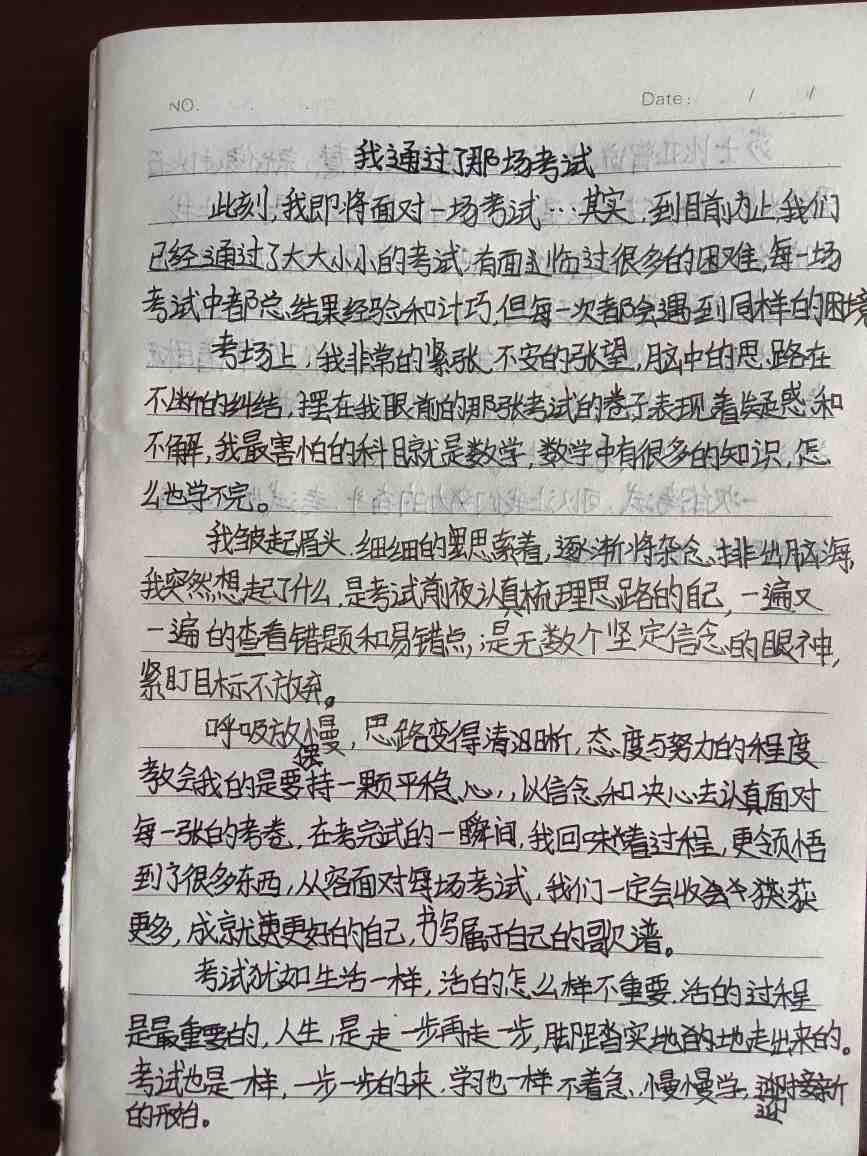 NO.
Date: / /
我通过了那场考试
此刻,我即将面对一场考试…其实,到目前为止,我们
已经通过了大大小小的考试,有面临过很多的困难,每一场
考试中都总结果经验和计巧,但每一次都会遇到同样的困境
考场上,我非常的紧张,不安的张望,脑中的思路在
不断的纠结,摆在我眼前的那张考试的卷子表现着疑惑和
不解,我最害怕的科目就是数学,数学中有很多的知识,怎
么也学不完。
我皱起眉头,细细的思索着,逐渐将杂念排出脑海,
我突然想起了什么,是考试前夜认真梳理思路的自己,一遍又
一遍的查看错题和易错点,是无数个坚定信念的眼神,
紧盯目标不放弃。
呼吸放慢,思路变得清晰,态度与努力的程度
教会我的是要保持一颗平稳心,以信念和决心去认真面对
每一张的考卷,在考完试的一瞬间,我回味着过程,更领悟
到了很多东西,从容面对每场考试,我们一定会收获
更多,成就更好的自己,书写属于自己的歌谱。
考试犹如生活一样,活的怎么样不重要,活的过程
是最重要的,人生,是走一步再走一步,脚踏实地的地走出来的。
考试也是一样,一步一步的来,学习也一样不着急,慢慢学,迎接新
的开始。